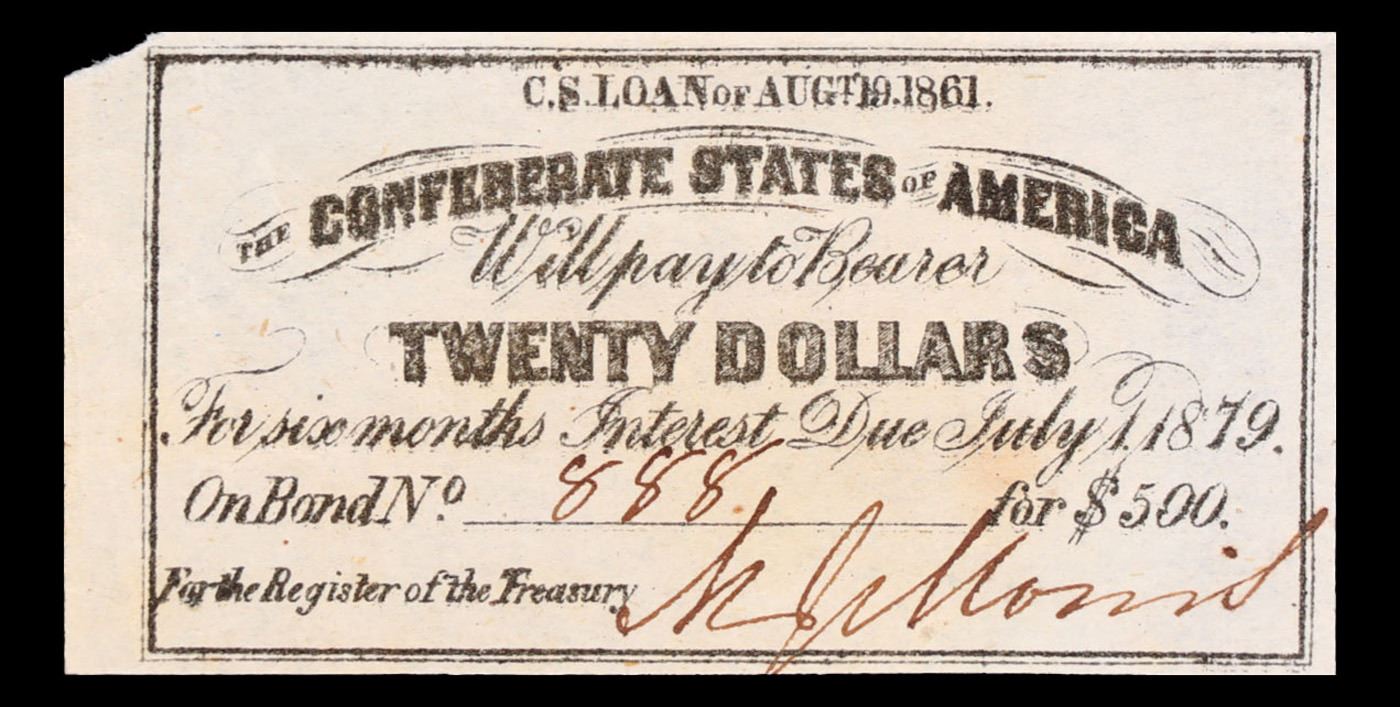 C.S. LOAN OF AUGT 19. 1861.
THE CONFEDERATE STATES OF AMERICA
Will pay to Bearer
TWENTY DOLLARS
For six months Interest Due July 1, 1879.
On Bond No. 888 for $500.
For the Register of the Treasury
Morris